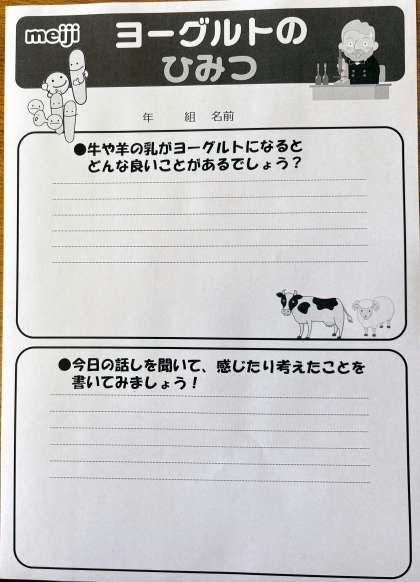 meiji
ヨーグルトの
ひみつ
年 組 名前
●牛や羊の乳がヨーグルトになると
どんな良いことがあるでしょう？
●今日の話しを聞いて、感じたり考えたことを
書いてみましょう！